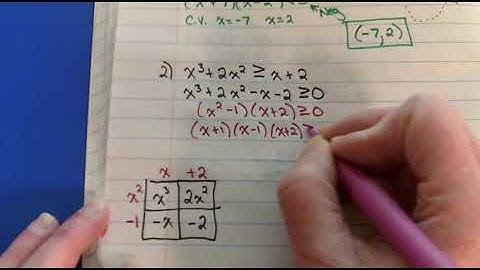 C.V. x=-7, x=2
Neg
(-7,2)
2) x³+2x² ≥ x+2
x³+2x²-x-2 ≥0
(x²-1)(x+2) ≥0
(x+1)(x-1)(x+2) ≥
x +2
x² x³ 2x²
-1 -x -2